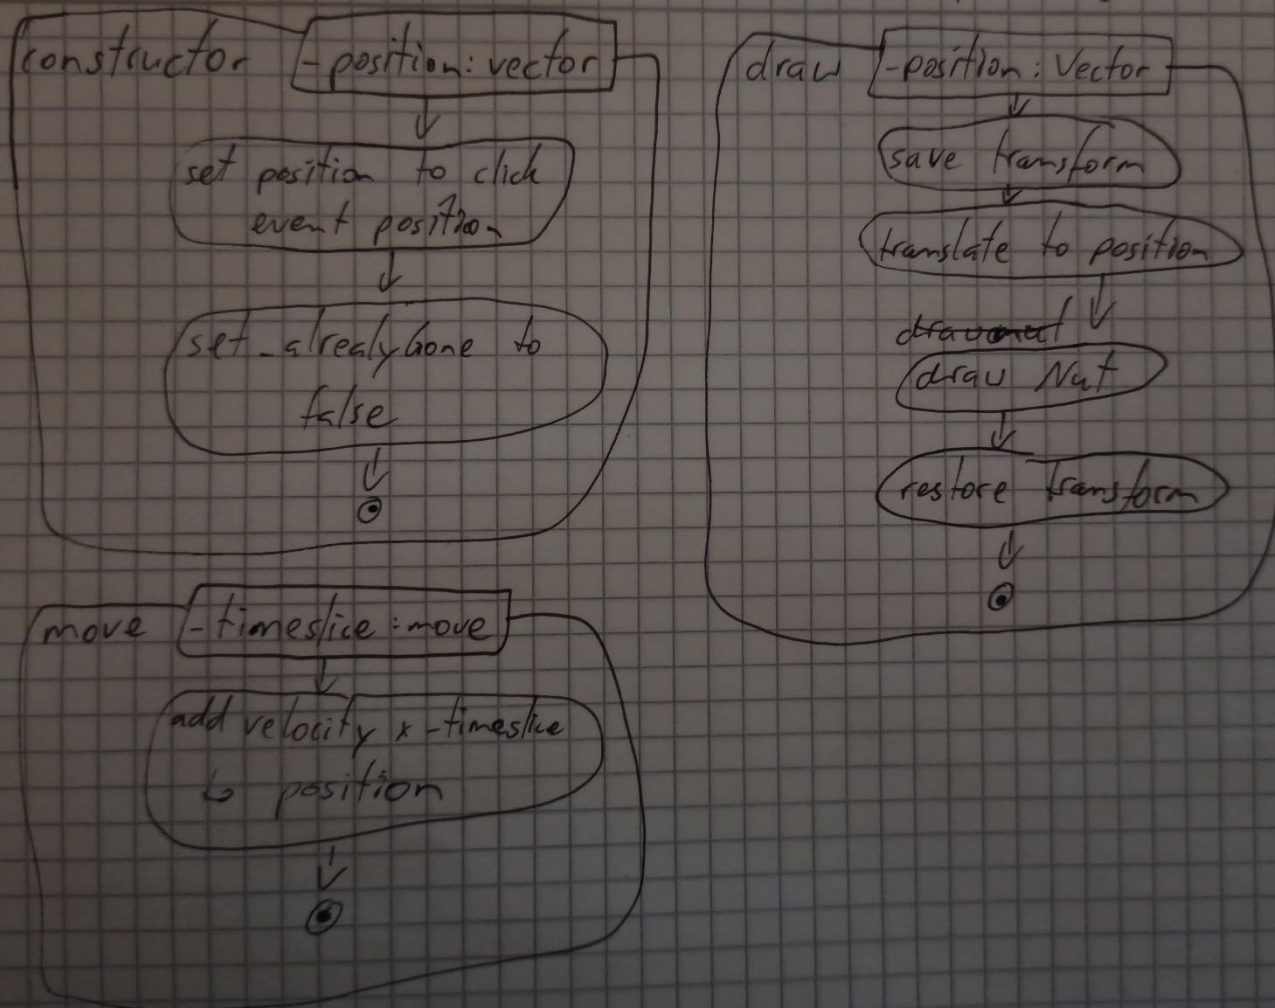 constructor
-position: vector
set position to click
event position
set_alrealyGone to
false
move
-timeslice: move
add velocity x -timeslice
to position
draw
-position: Vector
save transform
translate to position
draw Nut
restore transform